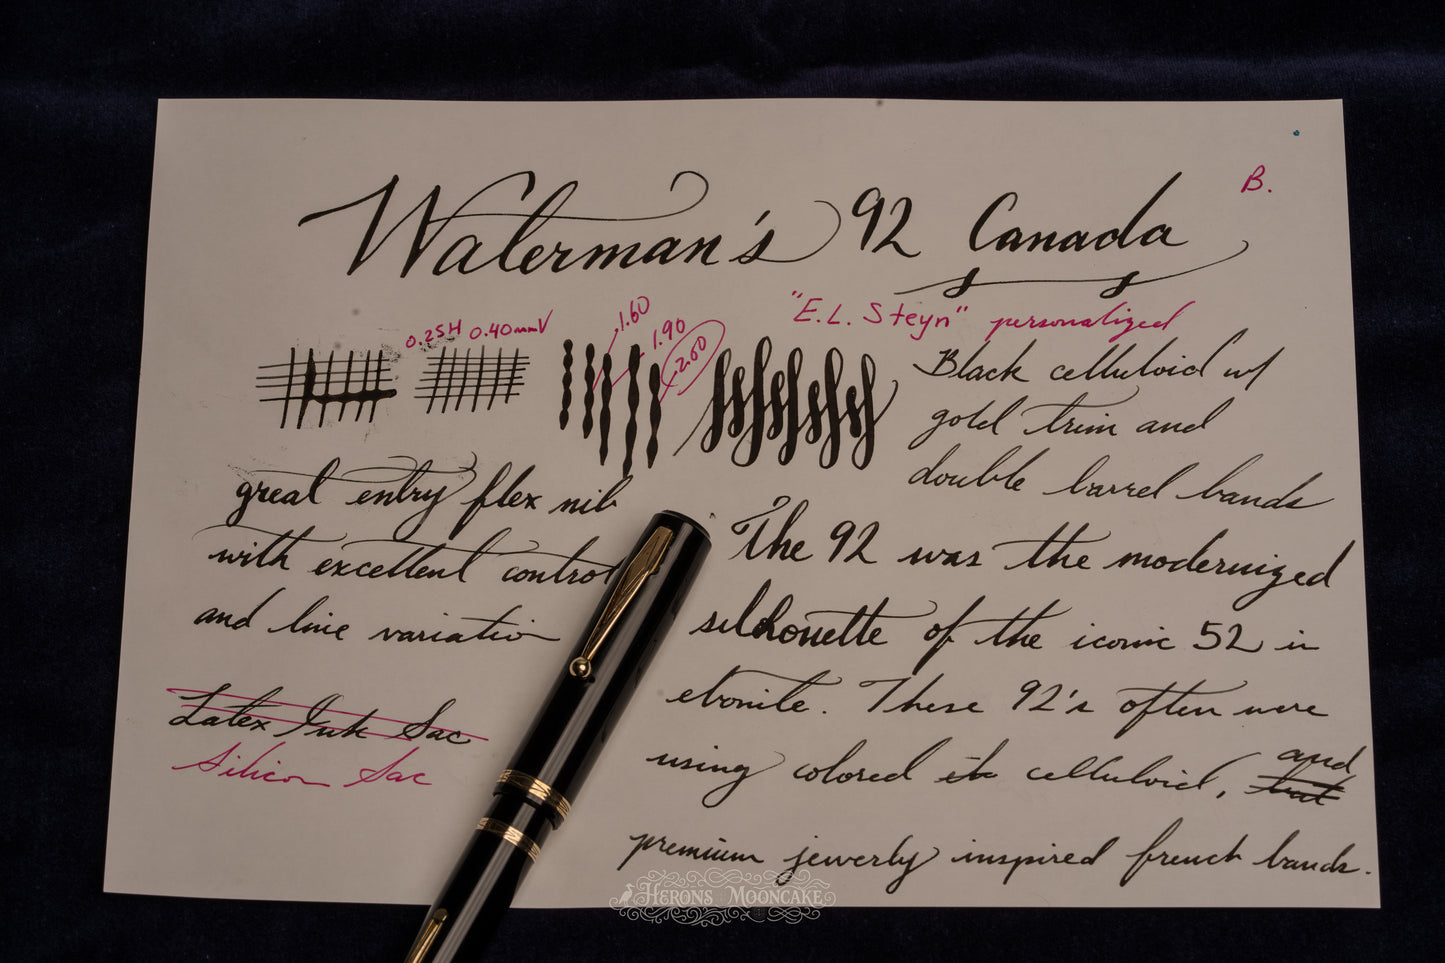 B.
Waterman's 92 Canada
"E.L. Steyn" personalized
0.25H 0.40mmV
1.60
1.90
2.00
Black celluloid w/
gold trim and
double barrel bands
great entry flex nib
with excellent control
and line variation
Latex Ink Sac
Silicon Sac
The 92 was the modernized
silhouette of the iconic 52 in
ebonite. These 92's often were
using colored in celluloid, but and
premium jewerly inspired french bands.
HERONS MOONCAKE